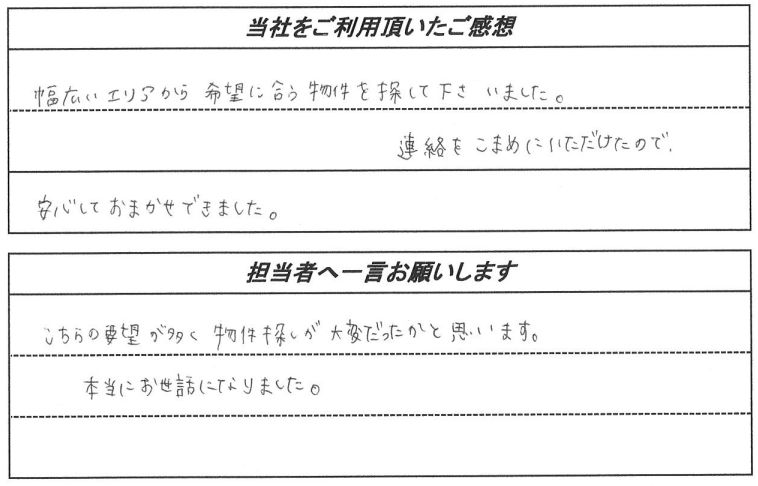 当社をご利用頂いたご感想
幅広いエリアから 希望に合う物件を探して下さいました。
連絡をこまめにいただけたので、
安心しておまかせできました。
担当者へ一言お願いします
こちらの要望が多く 物件探しが大変だったかと思います。
本当にお世話になりました。